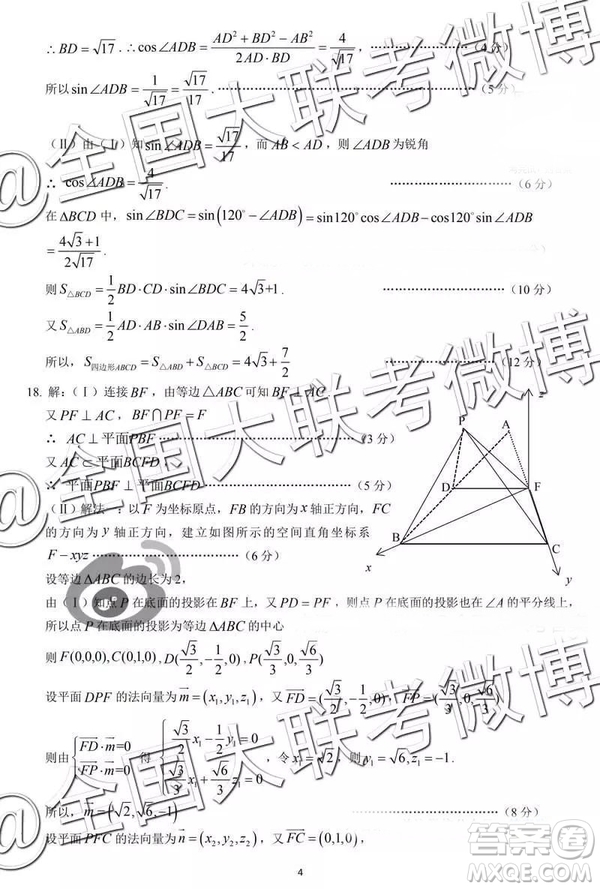 ∴ BD = √17 . ∴ cos∠ADB = (AD² + BD² − AB²)/(2AD·BD) = 4/√17 . ⋯⋯⋯⋯(4分)
所以 sin∠ADB = 1/√17 = √17/17 . ⋯⋯⋯⋯(5分)
(Ⅱ) 由(Ⅰ)知 sin∠ADB = √17/17 ，而 AB < AD ，则 ∠ADB 为锐角
∴ cos∠ADB = 4/√17 . ⋯⋯⋯⋯(6分)
在 ΔBCD 中，sin∠BDC = sin(120° − ∠ADB) = sin120°cos∠ADB − cos120°sin∠ADB
= (4√3+1)/(2√17) .
则 S△BCD = 1/2 BD·CD·sin∠BDC = 4√3+1 . ⋯⋯⋯⋯(10分)
又 S△ABD = 1/2 AD·AB·sin∠DAB = 5/2 .
所以，S四边形ABCD = S△ABD + S△BCD = 4√3 + 7/2 ⋯⋯⋯⋯(12分)
18. 解：(Ⅰ) 连接 BF ，由等边 △ABC 可知 BF ⊥ AC .
又 PF ⊥ AC ， BF∩PF = F .
∴ AC ⊥ 平面PBF ⋯⋯⋯⋯(3分)
又 AC ⊂ 平面 BCFD ，
∴ 平面PBF ⊥ 平面BCFD . ⋯⋯⋯⋯(5分)
z
P
A
D
F
B
C
x
y
(Ⅱ) 解法一：以 F 为坐标原点，FB 的方向为 x 轴正方向，FC
的方向为 y 轴正方向，建立如图所示的空间直角坐标系
F − xyz ⋯⋯⋯⋯(6分)
设等边 ΔABC 的边长为 2，
由(Ⅰ)知点 P 在底面的投影在 BF 上，又 PD = PF，则点 P 在底面的投影也在 ∠A 的平分线上，
所以点 P 在底面的投影为等边 ΔABC 的中心
则 F(0,0,0), C(0,1,0) , D(√3/2, −1/2, 0) , P(√3/3, 0, √6/3)
设平面 DPF 的法向量为 m = (x₁, y₁, z₁)，又 FD = (√3/2, −1/2, 0)，FP = (√3/3, 0, √6/3)
则由 { FD·m=0 FP·m=0 得 { √3/2 x₁ − 1/2 y₁=0 √3/3 x₁ + √6/3 z₁=0 ，令 x₁ = √2，则 y₁ = √6, z₁ = −1
所以，m = (√2, √6, −1) ⋯⋯⋯⋯(8分)
设平面 PFC 的法向量为 n = (x₂, y₂, z₂)，又 FC = (0,1,0)，
4
@全国大联考微博
@全国大联考微博
@全国大联考微博
答案圈
MXQE.COM